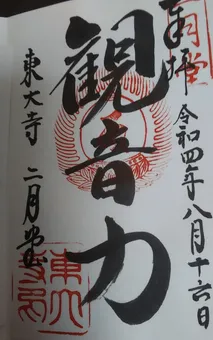 奉拝
令和四年八月十六日
観音力
東大寺 二月堂